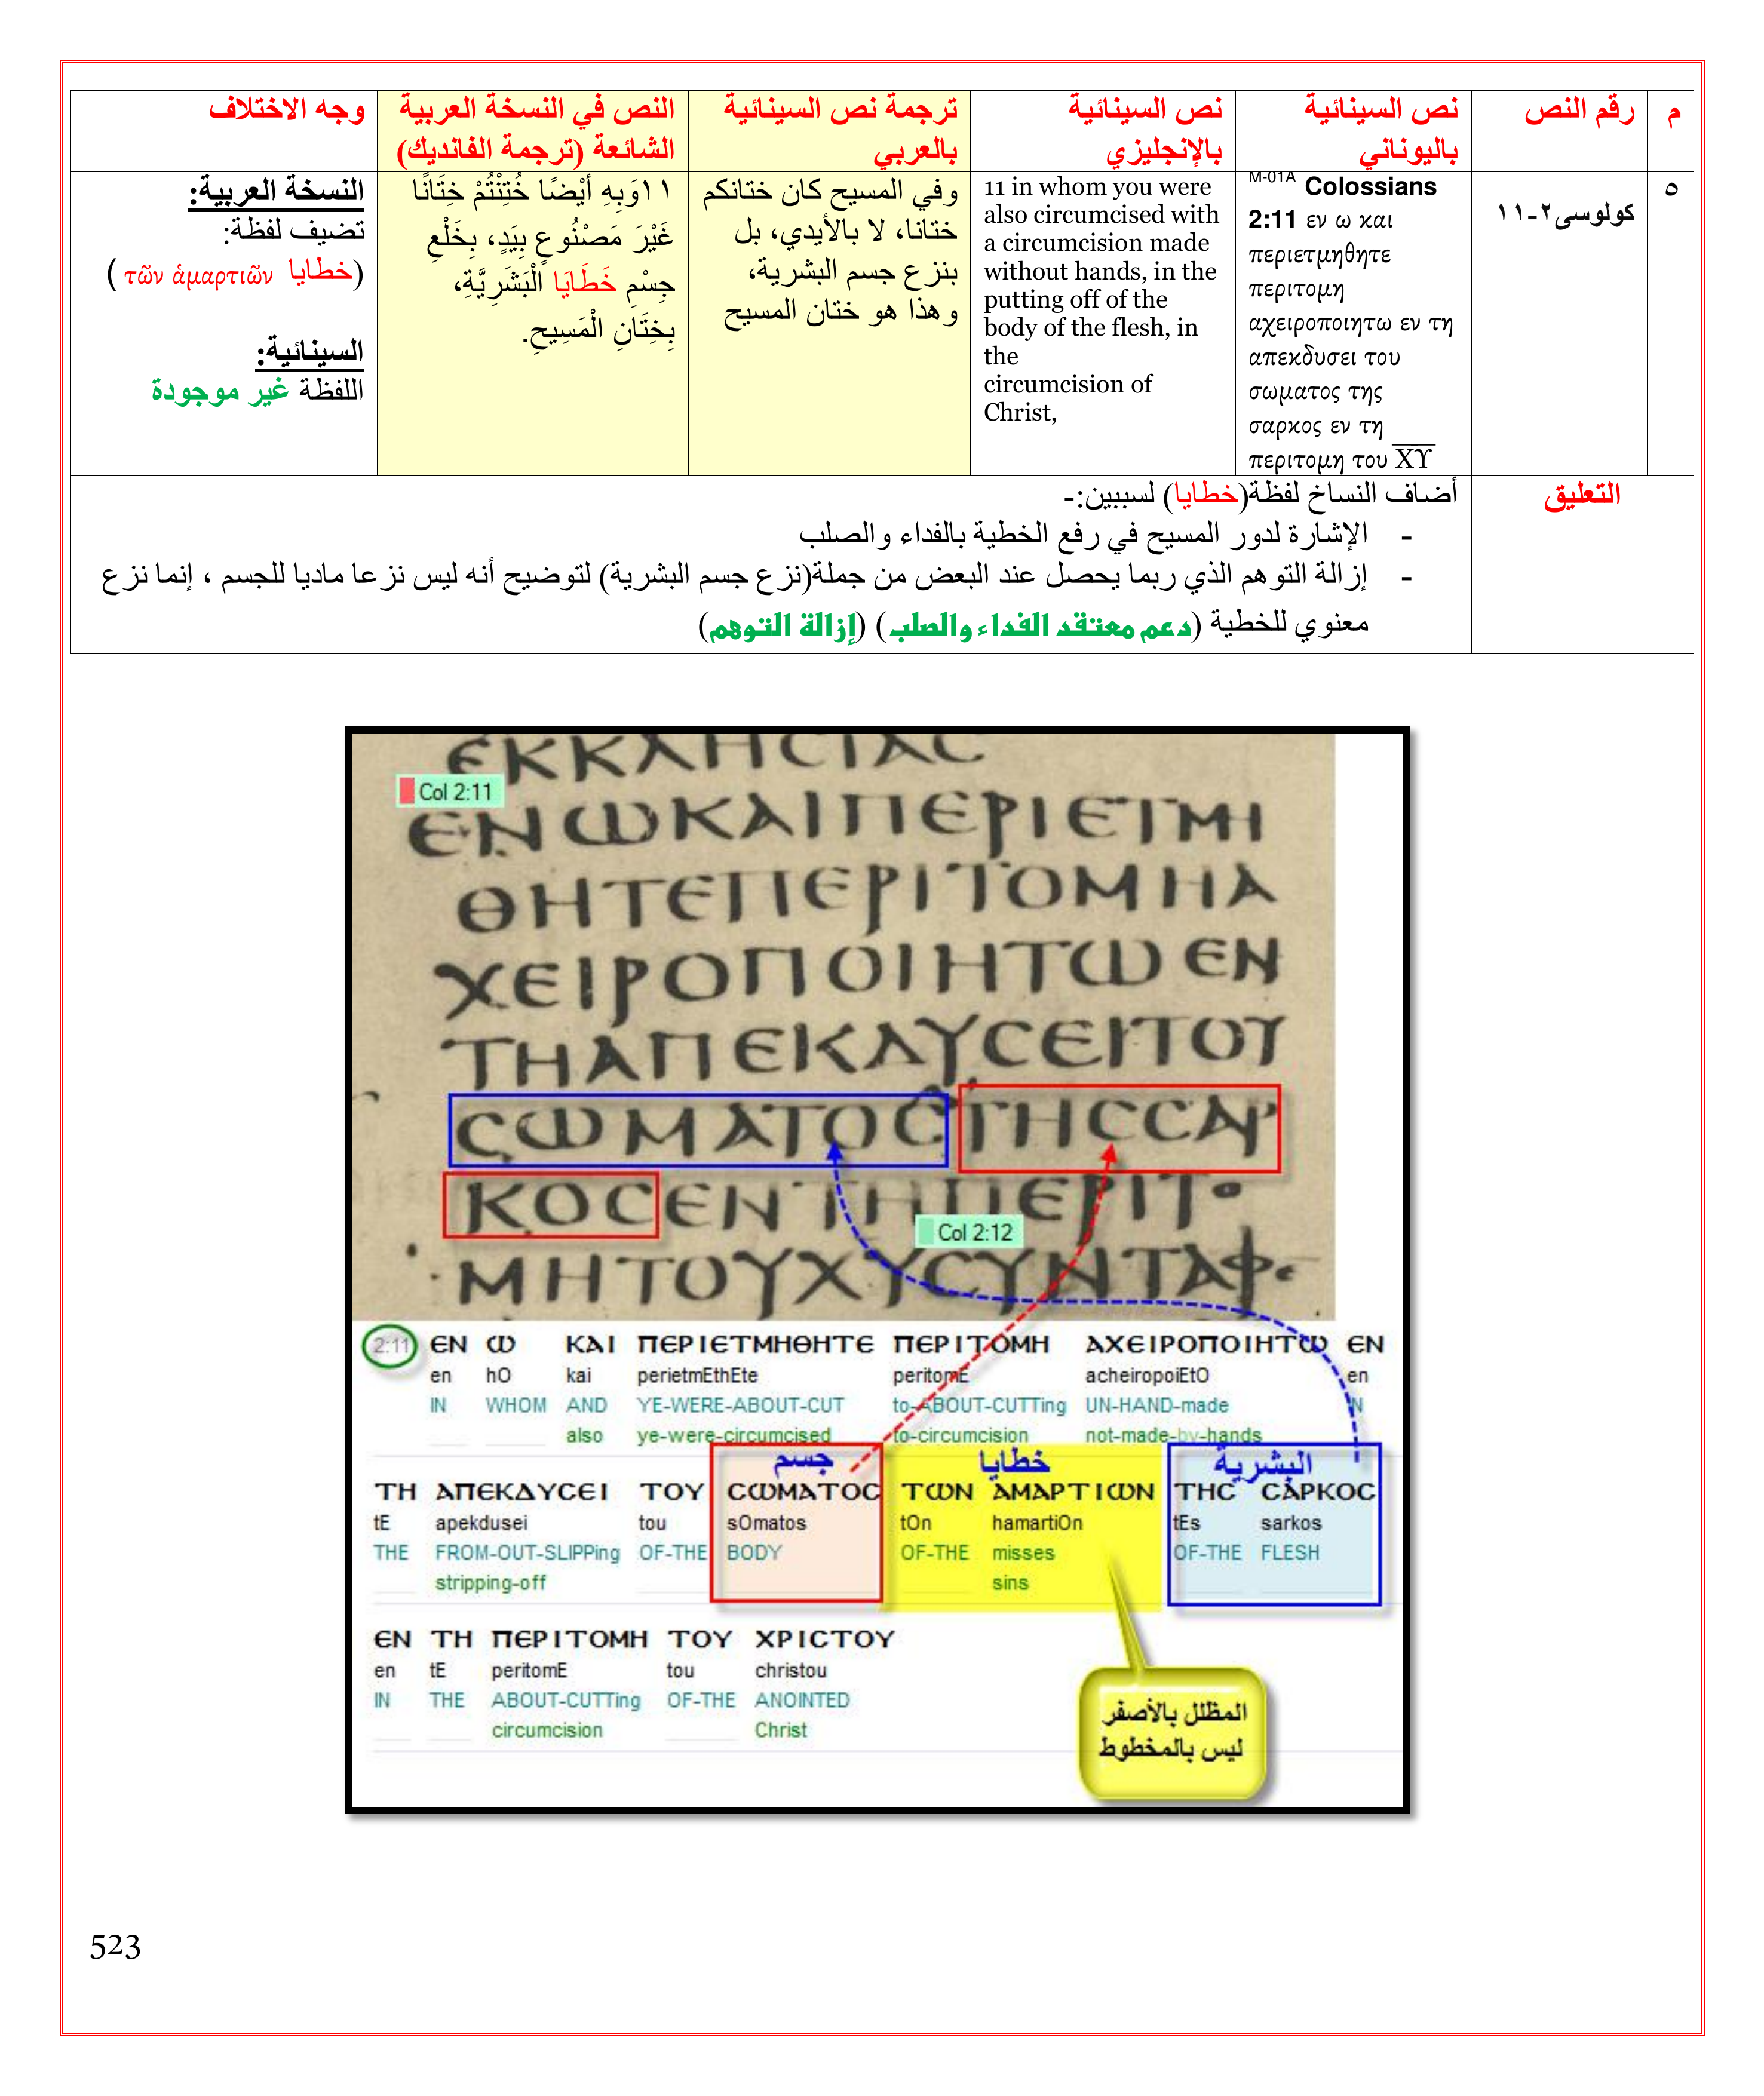 م
رقم النص
نص السينائية
باليوناني
نص السينائية
بالإنجليزي
ترجمة نص السينائية
بالعربي
النص في النسخة العربية
الشائعة (ترجمة الفانديك)
وجه الاختلاف
٥
كولوسى٢-١١
M-01A Colossians
2:11 εν ω και
περιετμηθητε
περιτομη
αχειροποιητω εν τη
απεκδυσει του
σωματος της
σαρκος εν τη
περιτομη του Χ̅Υ̅
11 in whom you were
also circumcised with
a circumcision made
without hands, in the
putting off of the
body of the flesh, in
the
circumcision of
Christ,
وفي المسيح كان ختانكم
ختانا، لا بالأيدي، بل
بنزع جسم البشرية،
وهذا هو ختان المسيح
١١وَبِهِ أَيْضًا خُتِنْتُمْ خِتَانًا
غَيْرَ مَصْنُوعٍ بِيَدٍ، بِخَلْعِ
جِسْمِ خَطَايَا الْبَشَرِيَّةِ،
بِخِتَانِ الْمَسِيحِ.
النسخة العربية:
تضيف لفظة:
(خطايا τῶν ἁμαρτιῶν )
السينائية:
اللفظة غير موجودة
التعليق
أضاف النساخ لفظة(خطايا) لسببين:-
- الإشارة لدور المسيح في رفع الخطية بالفداء والصلب
- إزالة التوهم الذي ربما يحصل عند البعض من جملة(نزع جسم البشرية) لتوضيح أنه ليس نزعا ماديا للجسم ، إنما نزع
معنوي للخطية (دعم معتقد الفداء والصلب ) (إزالة التوهم)
ΕΚΚΛΗϹΙΑϹ
Col 2:11
ΕΝΩΚΑΙΠΕΡΙΕΤΜΗ
ΘΗΤΕΠΕΡΙΤΟΜΗΑ
ΧΕΙΡΟΠΟΙΗΤΩΕΝ
ΤΗΑΠΕΚΔΥϹΕΙΤΟΥ
ϹΩΜΑΤΟϹΤΗϹϹΑΡ
ΚΟϹΕΝΤΗΠΕΡΙΤΟ
Col 2:12
ΜΗΤΟΥΧΥϹΥΝΤΑΦΕ
2:11 ΕΝ Ω ΚΑΙ ΠΕΡΙΕΤΜΗΘΗΤΕ ΠΕΡΙΤΟΜΗ ΑΧΕΙΡΟΠΟΙΗΤΩ ΕΝ
en hO kai perietmEthEte peritomE acheiropoiEtO en
IN WHOM AND YE-WERE-ABOUT-CUT to-ABOUT-CUTTing UN-HAND-made IN
also ye-were-circumcised to-circumcision not-made-by-hands
جسم خطايا البشرية
ΤΗ ΑΠΕΚΔΥϹΕΙ ΤΟΥ ϹΩΜΑΤΟϹ ΤΩΝ ΑΜΑΡΤΙΩΝ ΤΗϹ ϹΑΡΚΟϹ
tE apekdusei tou sOmatos tOn hamartiOn tEs sarkos
THE FROM-OUT-SLIPPing OF-THE BODY OF-THE misses OF-THE FLESH
stripping-off sins
ΕΝ ΤΗ ΠΕΡΙΤΟΜΗ ΤΟΥ ΧΡΙϹΤΟΥ
en tE peritomE tou christou
IN THE ABOUT-CUTTing OF-THE ANOINTED
circumcision Christ
المظلل بالأصفر
ليس بالمخطوط
523